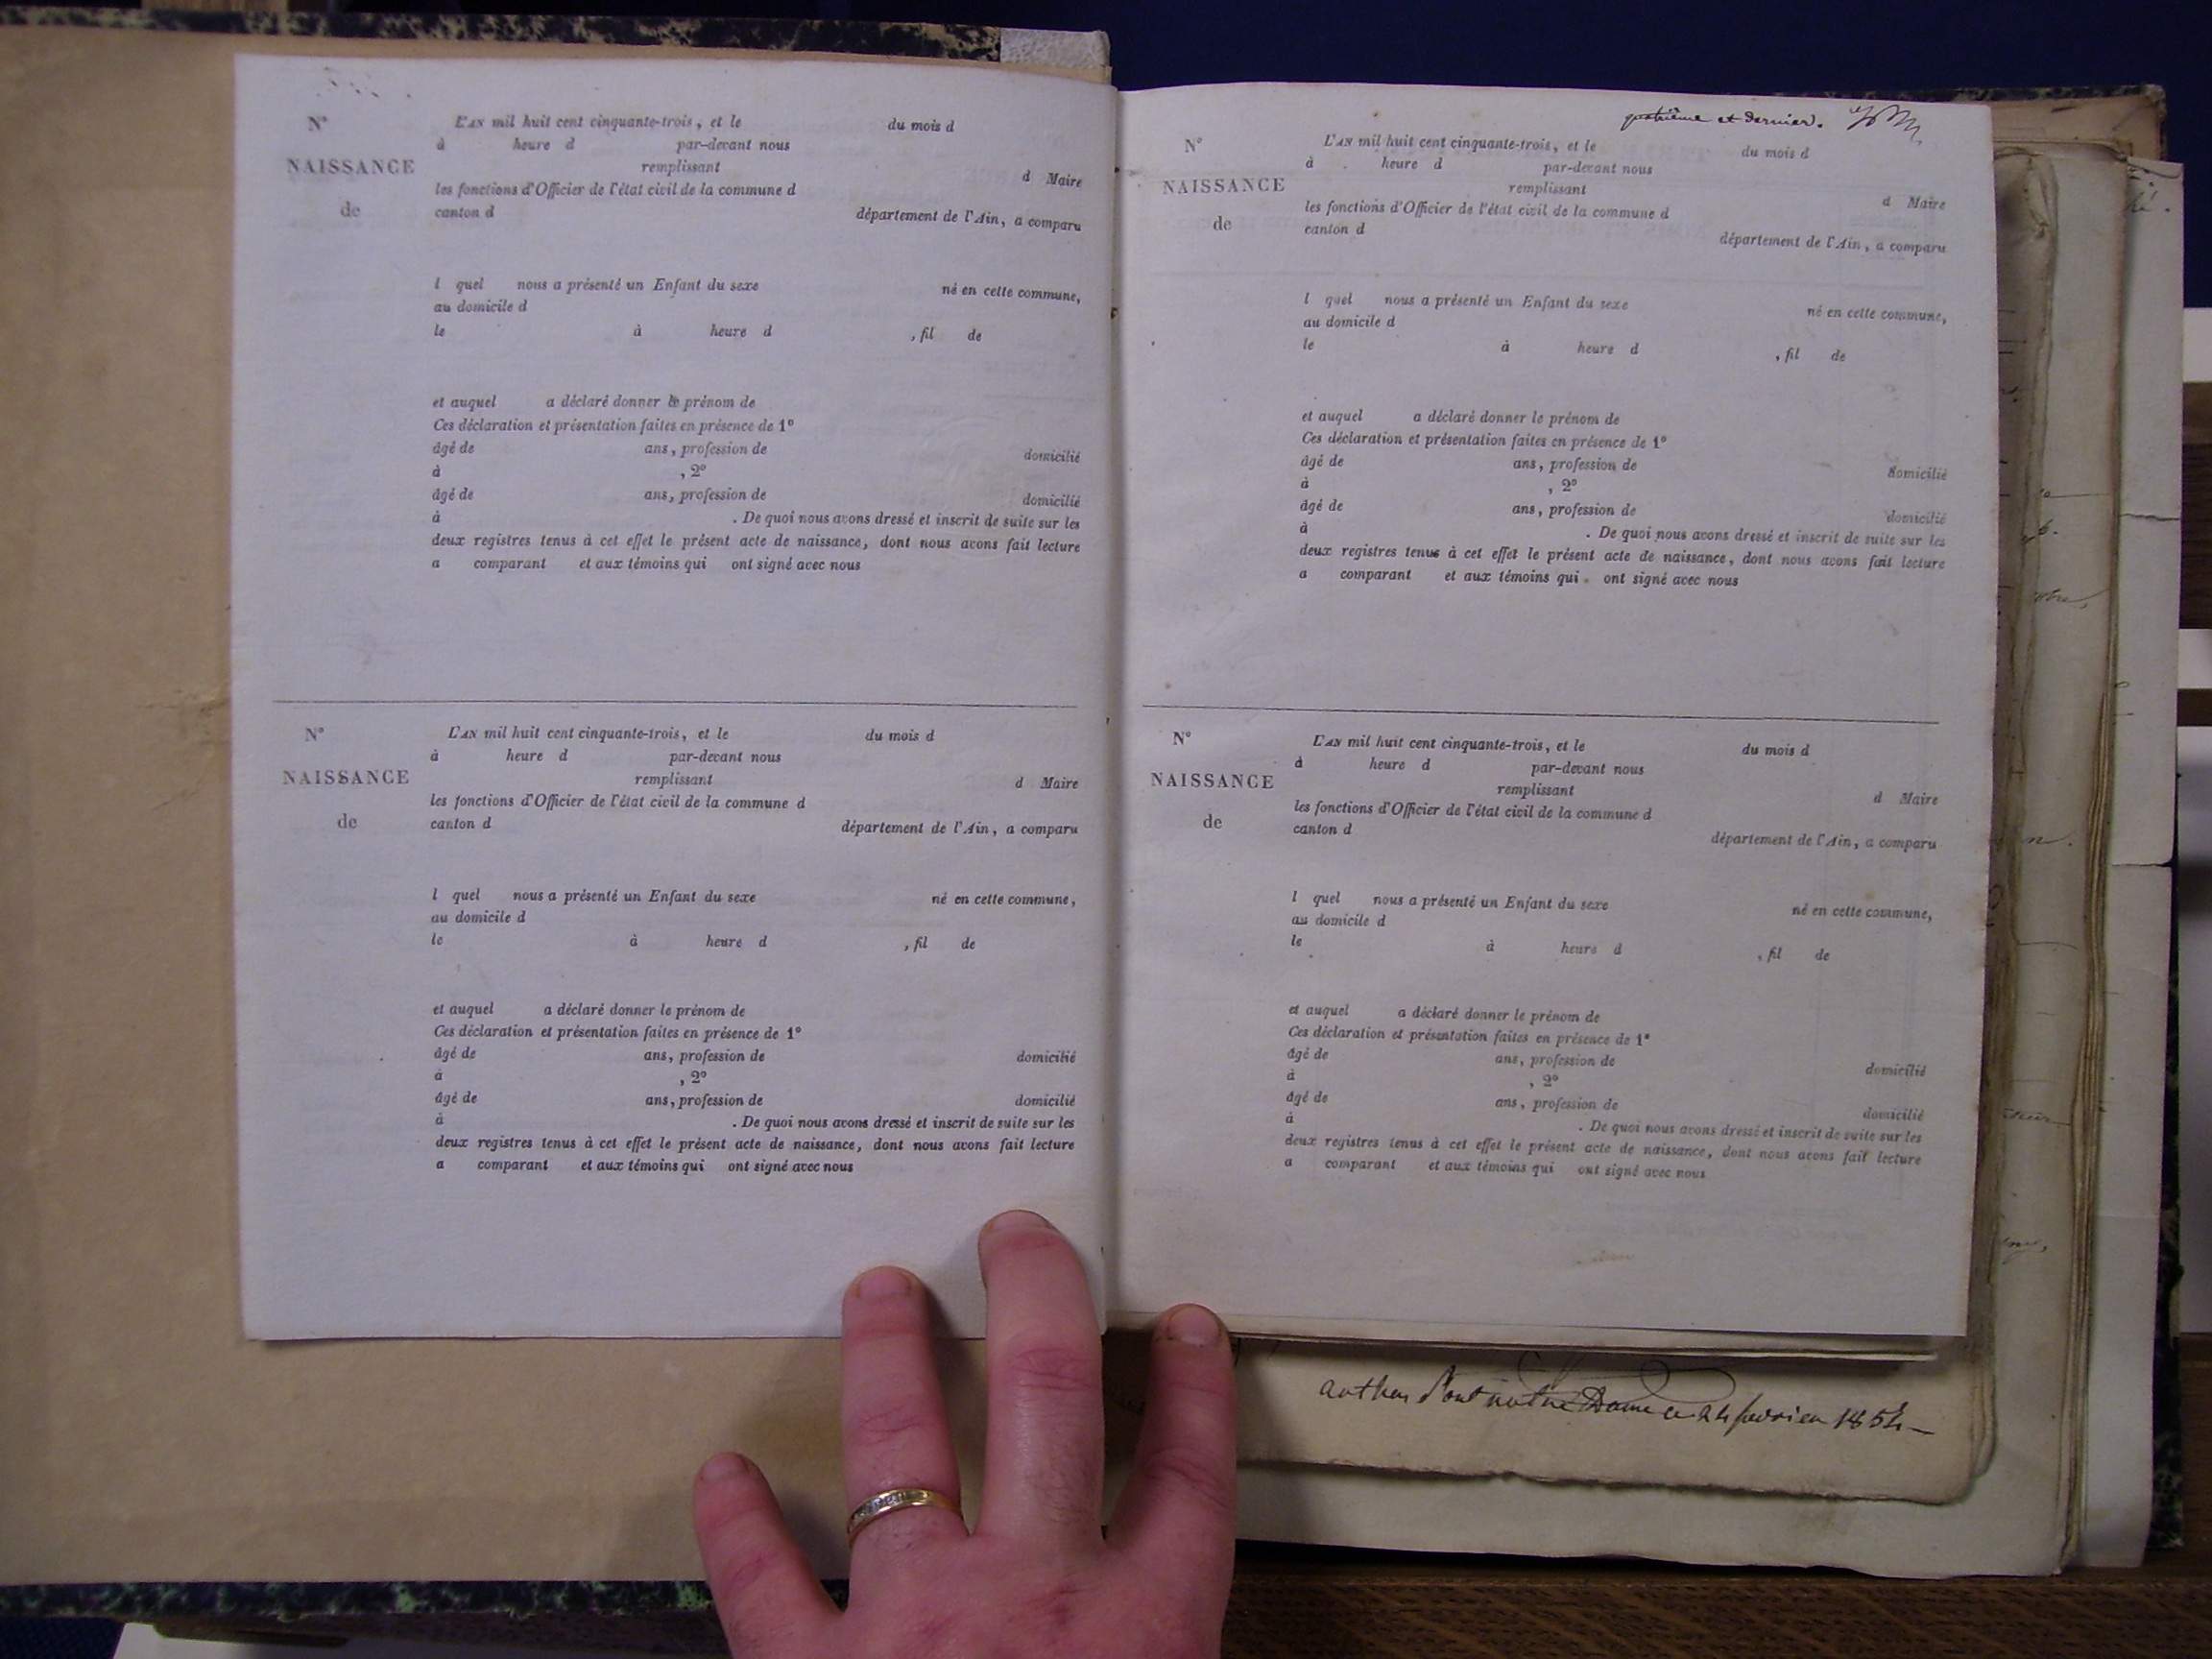 N° L'AN mil huit cent cinquante-trois, et le du mois d
à heure d par-devant nous
NAISSANCE remplissant d Maire
les fonctions d'Officier de l'état civil de la commune d
de canton d département de l'Ain, a comparu
l quel nous a présenté un Enfant du sexe né en cette commune,
au domicile d
le à heure d , fil de
et auquel a déclaré donner le prénom de
Ces déclaration et présentation faites en présence de 1°
âgé de ans, profession de domicilié
à , 2°
âgé de ans, profession de domicilié
à . De quoi nous avons dressé et inscrit de suite sur les
deux registres tenus à cet effet le présent acte de naissance, dont nous avons fait lecture
a comparant et aux témoins qui ont signé avec nous
N° L'AN mil huit cent cinquante-trois, et le du mois d
à heure d par-devant nous
NAISSANCE remplissant d Maire
les fonctions d'Officier de l'état civil de la commune d
de canton d département de l'Ain, a comparu
l quel nous a présenté un Enfant du sexe né en cette commune,
au domicile d
le à heure d , fil de
et auquel a déclaré donner le prénom de
Ces déclaration et présentation faites en présence de 1°
âgé de ans, profession de domicilié
à , 2°
âgé de ans, profession de domicilié
à . De quoi nous avons dressé et inscrit de suite sur les
deux registres tenus à cet effet le présent acte de naissance, dont nous avons fait lecture
a comparant et aux témoins qui ont signé avec nous
et dernier.
N° L'AN mil huit cent cinquante-trois, et le du mois d
à heure d par-devant nous
NAISSANCE remplissant d Maire
les fonctions d'Officier de l'état civil de la commune d
de canton d département de l'Ain, a comparu
l quel nous a présenté un Enfant du sexe né en cette commune,
au domicile d
le à heure d , fil de
et auquel a déclaré donner le prénom de
Ces déclaration et présentation faites en présence de 1°
âgé de ans, profession de domicilié
à , 2°
âgé de ans, profession de domicilié
à . De quoi nous avons dressé et inscrit de suite sur les
deux registres tenus à cet effet le présent acte de naissance, dont nous avons fait lecture
a comparant et aux témoins qui ont signé avec nous
N° L'AN mil huit cent cinquante-trois, et le du mois d
à heure d par-devant nous
NAISSANCE remplissant d Maire
les fonctions d'Officier de l'état civil de la commune d
de canton d département de l'Ain, a comparu
l quel nous a présenté un Enfant du sexe né en cette commune,
au domicile d
le à heure d , fil de
et auquel a déclaré donner le prénom de
Ces déclaration et présentation faites en présence de 1°
âgé de ans, profession de domicilié
à , 2°
âgé de ans, profession de domicilié
à . De quoi nous avons dressé et inscrit de suite sur les
deux registres tenus à cet effet le présent acte de naissance, dont nous avons fait lecture
a comparant et aux témoins qui ont signé avec nous
Dame ce 24